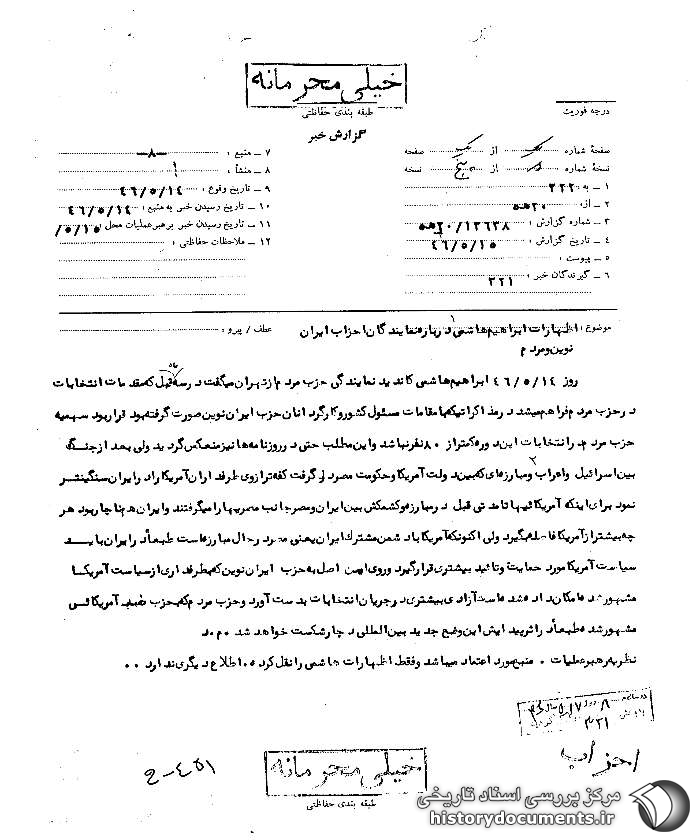 خیلی محرمانه
طبقه بندی حفاظتی
گزارش خبر
درجه فوریت
صفحهٔ شماره یک از یک صفحه
نسخهٔ شماره از پنج نسخه
۱ ـ به : ۲۲۲
۲ ـ از : ۲۰ ه
۳ ـ شماره گزارش : ۱۲۶۳۸/۲۰ ه
۴ ـ تاریخ گزارش : ۴۶/۵/۱۵
۵ ـ پیوست :
۶ ـ گیرندگان خبر : ۳۲۱
۷ ـ منبع : ـ۸ـ
۸ ـ منشأ : ۱
۹ ـ تاریخ وقوع : ۴۶/۵/۱۴
۱۰ ـ تاریخ رسیدن خبر به منبع : ۴۶/۵/۱۴
۱۱ ـ تاریخ رسیدن خبر برهبر عملیات محل : /۵/۱۵
۱۲ ـ ملاحظات حفاظتی :
موضوع : اظهارات ابراهیم هاشمی درباره نمایندگان احزاب ایران
نوین و مردم
عطف / پیرو :
روز ۴۶/۵/۱۴ ابراهیم هاشمی کاندید نمایندگی حزب مردم از تهران میگفت در سه ماه قبل که مقدمات انتخابات
در حزب مردم فراهم میشد در مذاکراتیکه با مقامات مسئول کشور و کارگردانان حزب ایران نوین صورت گرفته بود قرار بود سهمیه
حزب مردم در انتخابات این دوره کمتر از ۸۰ نفر نباشد و این مطلب حتی در روزنامه ها نیز منعکس گردید ولی بعد از جنگ
بین اسرائیل و اعراب و مبارزه ای که بین دولت آمریکا و حکومت مصر در گرفت کفه ترازوی طرفداران آمریکا را در ایران سنگین تر
نمود برای اینکه آمریکائیها تا مدتی قبل در مبارزه و کشمکش بین ایران و مصر جانب مصریها را میگرفتند و ایران هم ناچار بود هر
چه بیشتر از آمریکا فاصله بگیرد ولی اکنون که آمریکا با دشمن مشترک ایران یعنی مصر در حال مبارزه است طبعاً در ایران باید
سیاست آمریکا مورد حمایت و تائید بیشتری قرار گیرد و روی همین اصل به حزب ایران نوین که بطرفداری از سیاست آمریکا
مشهور شده امکان داده شده است آزادی بیشتری در جریان انتخابات بدست آورد و حزب مردم که بحزب ضد آمریکائی
مشهور شده طبعاً در اثر پیدایش این وضع جدید بین المللی دچار شکست خواهد شد ۰ م۰د
نظریه رهبر عملیات ۰ منبع مورد اعتماد میباشد و فقط اظهارات هاشمی را نقل کرده ۰ اطلاع دیگری ندارد ۰۰
۳۲۱
احزاب
خیلی محرمانه
طبقه بندی حفاظتی
مرکز بررسی اسناد تاریخی
historydocuments.ir